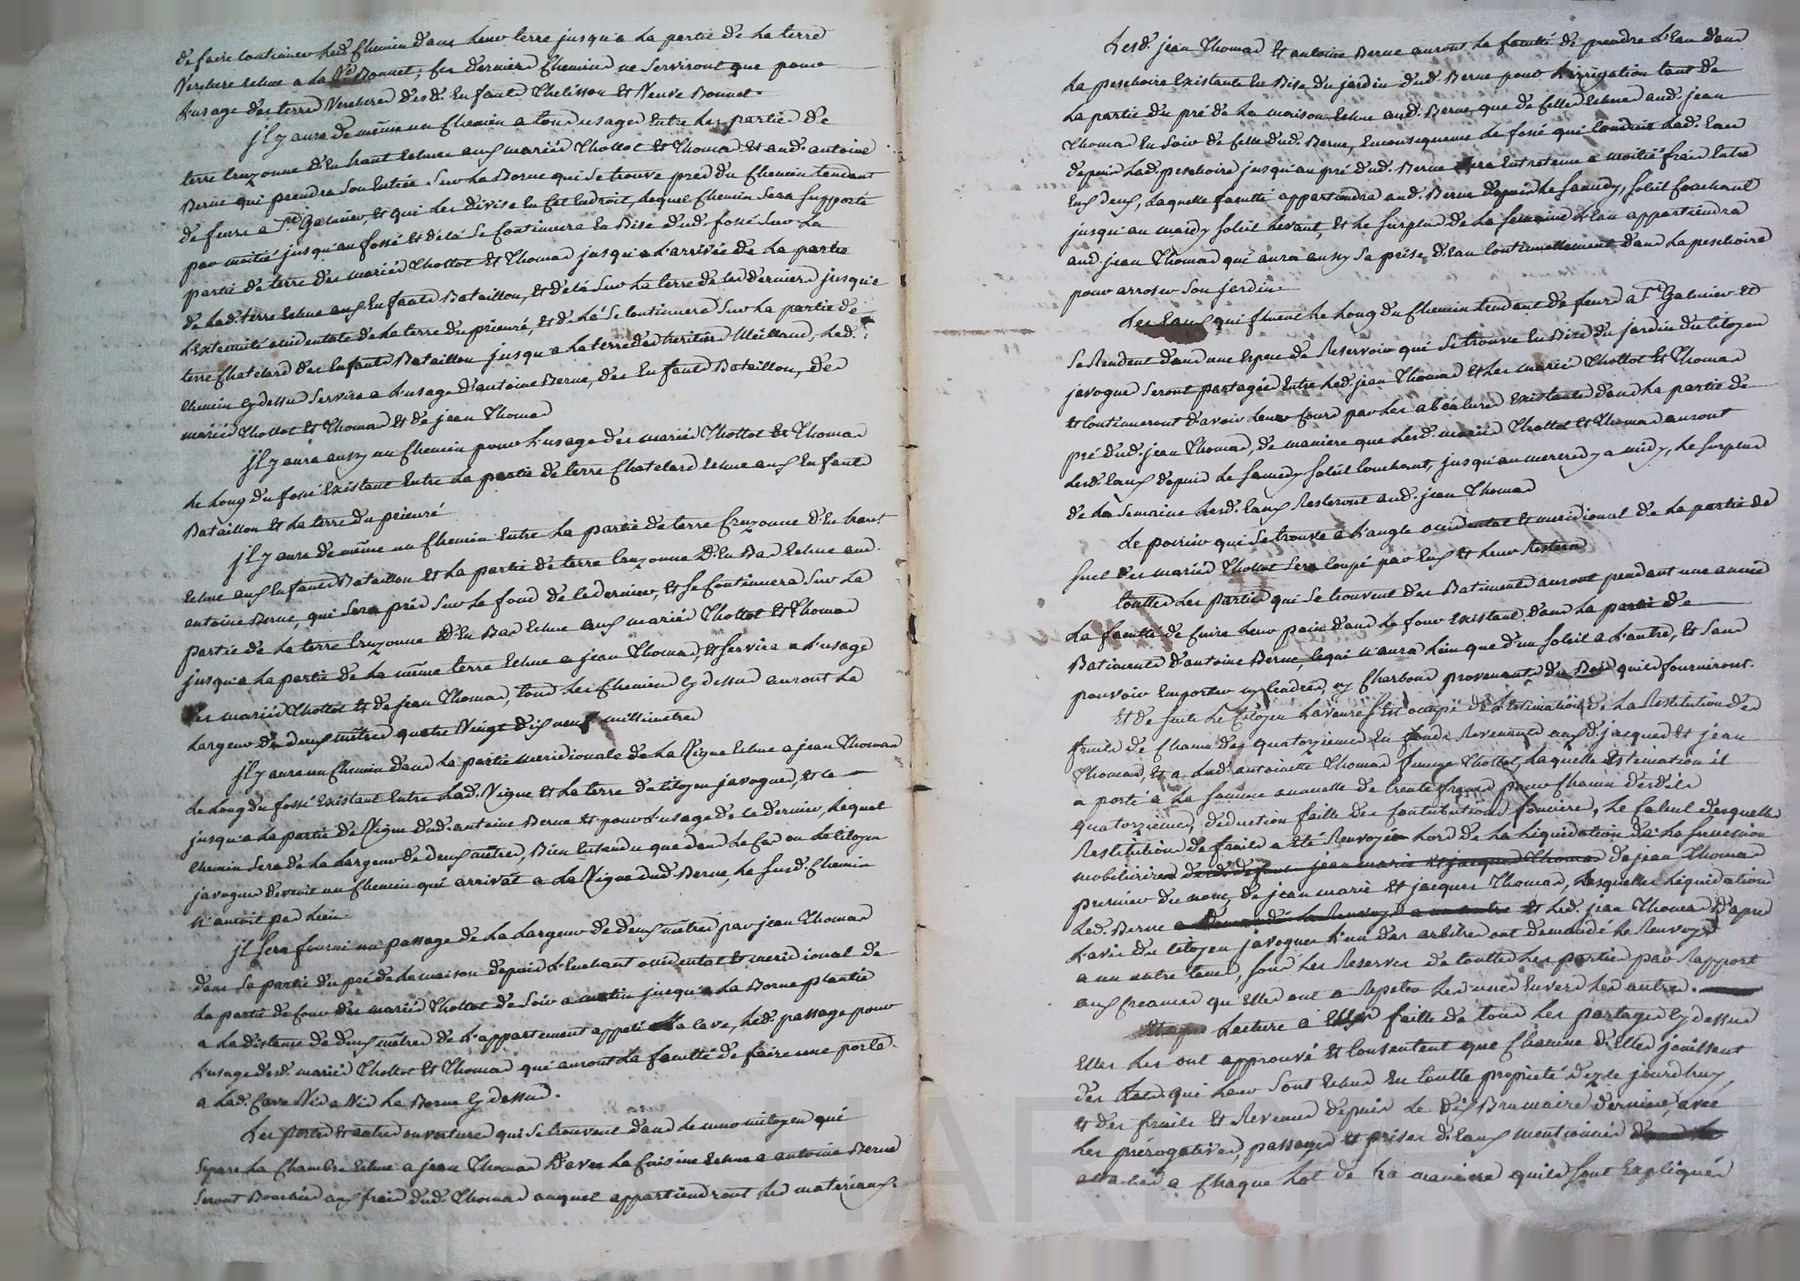 de faire continuer led. chemin dans leur terre jusqu'a la partie de la terre
Vercherre echue a la Ve Bonnet, ces derniers chemins ne serviront que pour
l'usage des terres Vercherre desd. enfants Thelisson et Veuve Bonnet.
jl y aura de même un chemin a tous usages entre les parties de
terre Cruzonne d'en haut echues aux mariés Thollot et Thomas et aud. antoine
Berne qui prendra son entrée sur la Borne qui se trouve près du chemin tendant
de feurs a St Galmier et qui les divise en cet endroit, lequel chemin sera supporté
par moitié jusqu'au fossé et delà se continuera en Bise dud. fossé sur la
partie de terre des mariés Thollot et Thomas jusqu'a l'arrivée de la partie
de lad. terre echue aux enfants Bataillon, et delà sur la terre de ces derniers jusqu'a
l'extremité occidentale de la terre du prieuré, et delà se continuera sur la partie de
terre Chatelard des enfants Bataillon jusqu'a la terre des heritiers Meilland, led.
chemin cy dessus servira a l'usage d'antoine Berne, des enfants Bataillon, des
mariés Thollot et Thomas et de jean Thomas
jl y aura aussy un chemin pour l'usage des mariés Thollot et Thomas
le long du fossé existant entre la partie de terre Chatelard echue aux enfants
Bataillon et la terre du prieuré
jl y aura de même un chemin entre la partie de terre Cruzonne d'en haut
echue aux enfants Bataillon et la partie de terre Cruzonne d'en Bas echue aud.
antoine Berne, qui sera pris sur le fond de ce dernier, et se continuera sur la
partie de la terre Cruzonne d'en Bas echue aux mariés Thollot et Thomas
jusqu'a la partie de la même terre echue a jean Thomas, et servira a l'usage
des mariés Thollot et de jean Thomas, tous les chemins cy dessus auront la
largeur de deux mêtres quatre Vingt dix neuf millimetres
jl y aura un chemin dans la partie meridionale de la Vigne echue a jean Thomas
le long du fossé existant entre lad. Vigne et la terre du citoyen javogues, et ce
jusqu'a la partie de Vigne dud. antoine Berne et pour l'usage de ce dernier, lequel
chemin sera de la largeur de deux mêtres, Bien entendu que dans le cas ou le citoyen
javogues devroit un chemin qui arrivat a la Vigne dud. Berne, le susd. chemin
n'auroit pas lieu
jl sera fourni un passage de la largeur de deux mêtres par jean Thomas
dans sa partie du pré de la maison depuis l'enchant occidental et meridional de
la partie de cour des mariés Thollot de soir a matin jusqu'a la Borne plantée
a la distance de deux mêtres de l'appartement appelé la cave, led. passage pour
l'usage desd. mariés Thollot et Thomas qui auront la faculté de faire une porte
a lad. Cave Vis a Vis la Borne cy dessus.
Les portes et autres ouvertures qui se trouvent dans le mur mitoyen qui
separe la Chambre echue a jean Thomas d'avec la Cuisine echue a antoine Berne
seront Bouchées aux frais dud. Thomas auquel appartiendront les materiaux.
Lesd. jean Thomas et antoine Berne auront la faculté de prendre l'eau dans
la peschoire existante en Bise du jardin dud. Berne pour l'irrigation tant de
la partie du pré de la maison echue aud. Berne que de celle echue aud. jean
Thomas en soir de celle dud. Berne, en consequence le fossé qui conduit lad. eau
depuis lad. peschoire jusqu'au pré dud. Berne sera entretenu a moitié frais entre
eux deux, laquelle faculté appartiendra aud. Berne depuis le samedy, soleil couchant
jusqu'au mardy soleil levant, et le surplus de la semaine l'eau appartiendra
aud. jean Thomas qui aura aussy sa prise d'eau continuellement dans la peschoire
pour arroser son jardin.
Les eaux qui fluent le long du chemin tendant de feurs a St Galmier et
se rendent dans une espece de Reservoir qui se trouve en Bise du jardin du citoyen
javogues seront partagées entre led. jean Thomas et les mariés Thollot et Thomas
et continueront d'avoir leur cours par les abéalures existantes dans la partie de
pré dud. jean Thomas, de maniere que lesd. mariés Thollot et Thomas auront
lesd. eaux depuis le samedy soleil couchant, jusqu'au mercredy a midy, le surplus
de la semaine lesd. eaux resteront aud. jean Thomas
Le poirier qui se trouve a l'angle occidental et meridional de la partie de
suel des mariés Thollot sera coupé par eux et leur restera
touttes les parties qui se trouvent des Batiments auront pendant une année
la faculté de cuire leur pain dans le four existant dans la partie de
Batiments d'antoine Berne lequi n'aura lieu que d'un soleil a l'autre, et sans
pouvoir emporter ny cendres, ny charbons provenants du Bois qu'ils fourniront.
Et de suite le citoyen Laveure s'est occupé de l'estimation de la Restitution des
fruits de chacun des quatorziemes en fonds revenants auxd. jacques et jean
Thomas, et a lad. antoinette Thomas femme Thollot, laquelle estimation il
a porté a la somme annuelle de trente francs pour chacun desdits
quatorziemes, déduction faitte des contributions foncieres, le calcul desquelles
Restitutions de fruits a été renvoyé lors de la liquidation de la succession
mobiliaire de jean Thomas
premier du nom, de jean marie et jacques Thomas, lesquelles liquidations
led. Berne et led. jean Thomas d'apres
l'avis du citoyen javogues l'un des arbitres ont demandé le renvoy
a un autre tems, sous les reserves de touttes les parties par rapport
aux creances qu'elles ont a repeter les unes envers les autres.
Lecture a faitte de tous les partages cy dessus
elles les ont approuvé et consentent que chacune d'elles jouissent
des lots qui leur sont echus en toutte propriété dez ce jourdhuy,
et des fruits et revenus depuis le dix Brumaire dernier, avec
les prérogatives, passages et prises d'eaux mentionnés
attachés a chaque lot de la maniere qu'ils sont expliqués